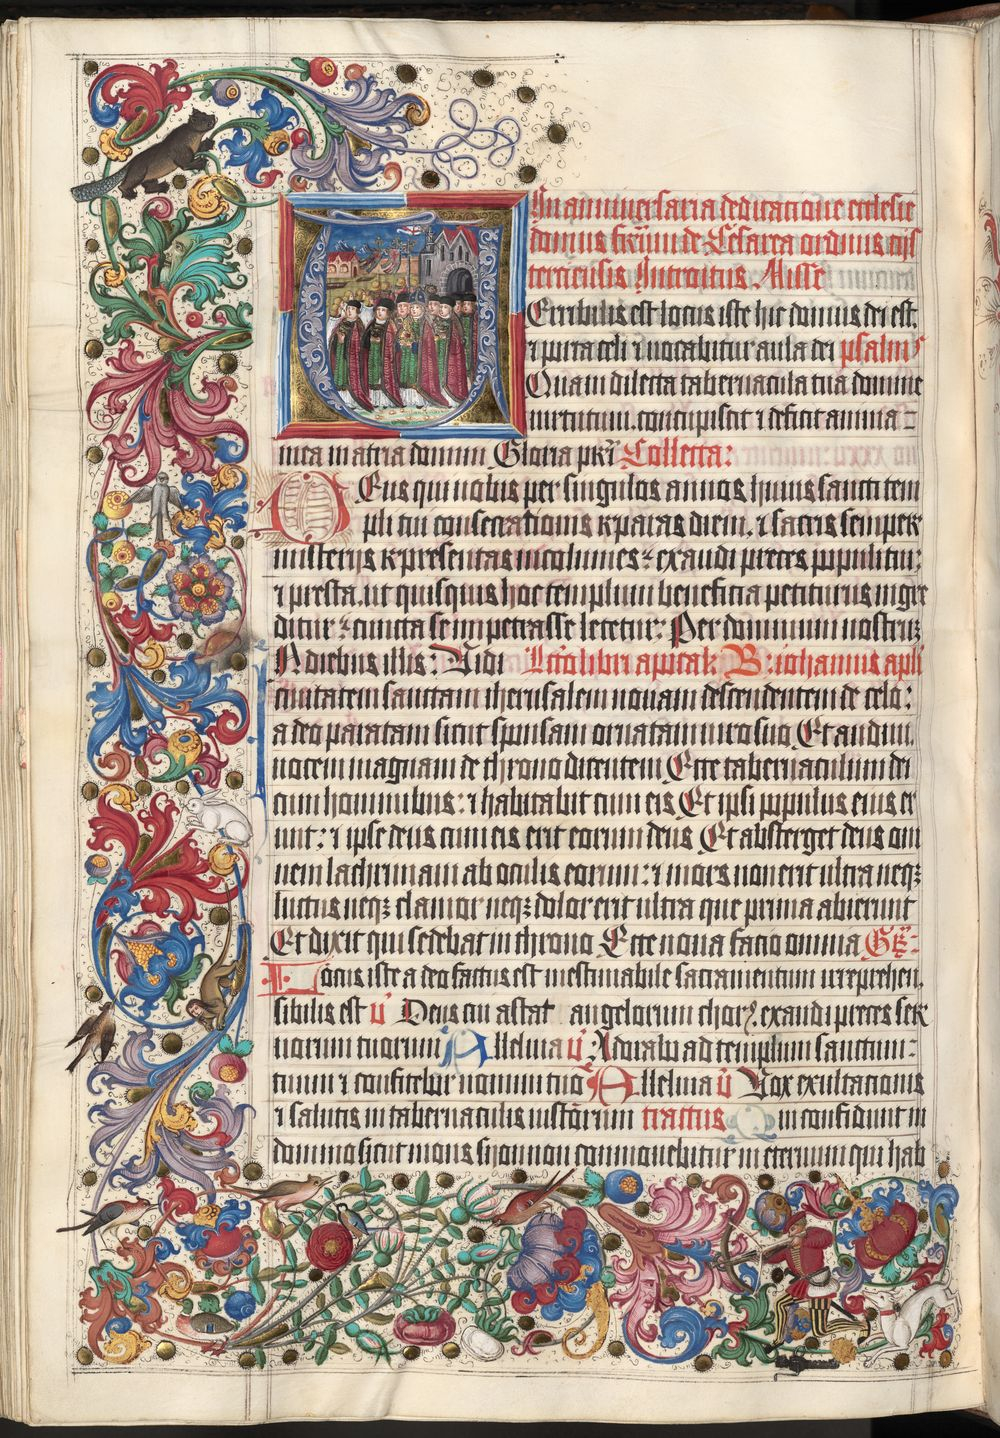 In anniuersaria dedicatione ecclesie
domus frm̄ de Cesarea ordinis cis
terciensis Introitus Misse
Erribilis est locus iste hic domus dei est
⁊ porta celi ⁊ uocabitur aula dei psalm⁹
Quam dilecta tabernacula tua domine
uirtutum. concupiscit ⁊ deficit anima
mea in atria domini Gloria pr̄i Collecta:
Deus qui nobis per singulos annos huius sancti tem
pli tui consecrationis reparas diem. ⁊ sacris semper
misteriis representas incolumes: exaudi preces populi tui.
⁊ presta. ut quisquis hoc templum beneficia petiturus ingre
ditur: cuncta se impetrasse letetur: Per dominum nostrum
N diebus illis: Uidi Lc̄o libri apocal: B: iohannis apli
ciuitatem sanctam iherusalem nouam descendentem de celo:
a deo paratam sicut sponsam ornatam uiro suo Et audiui
uocem magnam de throno dicentem Ecce tabernaculum dei
cum hominibus: ⁊ habitabit cum eis Et ipsi populus eius er
unt: ⁊ ipse deus cum eis erit eorum deus Et absterget deus om
nem lachrimam ab oculis eorum: ⁊ mors non erit ultra neqꝫ
luctus neqꝫ clamor neqꝫ dolor erit ultra que prima abierunt
Et dixit qui sedebat in throno Ecce noua facio omnia Gr̄
Locus iste a deo factus est inestimabile sacramentum irreprehen
sibilis est v̄ Deus cui astat angelorum chorꝰ exaudi preces ser
uorum tuorum Alleluia v̄ Adorabo ad templum sanctum
tuum ⁊ confitebor nomini tuo Alleluia v̄ Vox exultationis
⁊ salutis in tabernaculis iustorum tractus Qui confidunt in
domino sicut mons sion non commouebitur in eternum qui hab